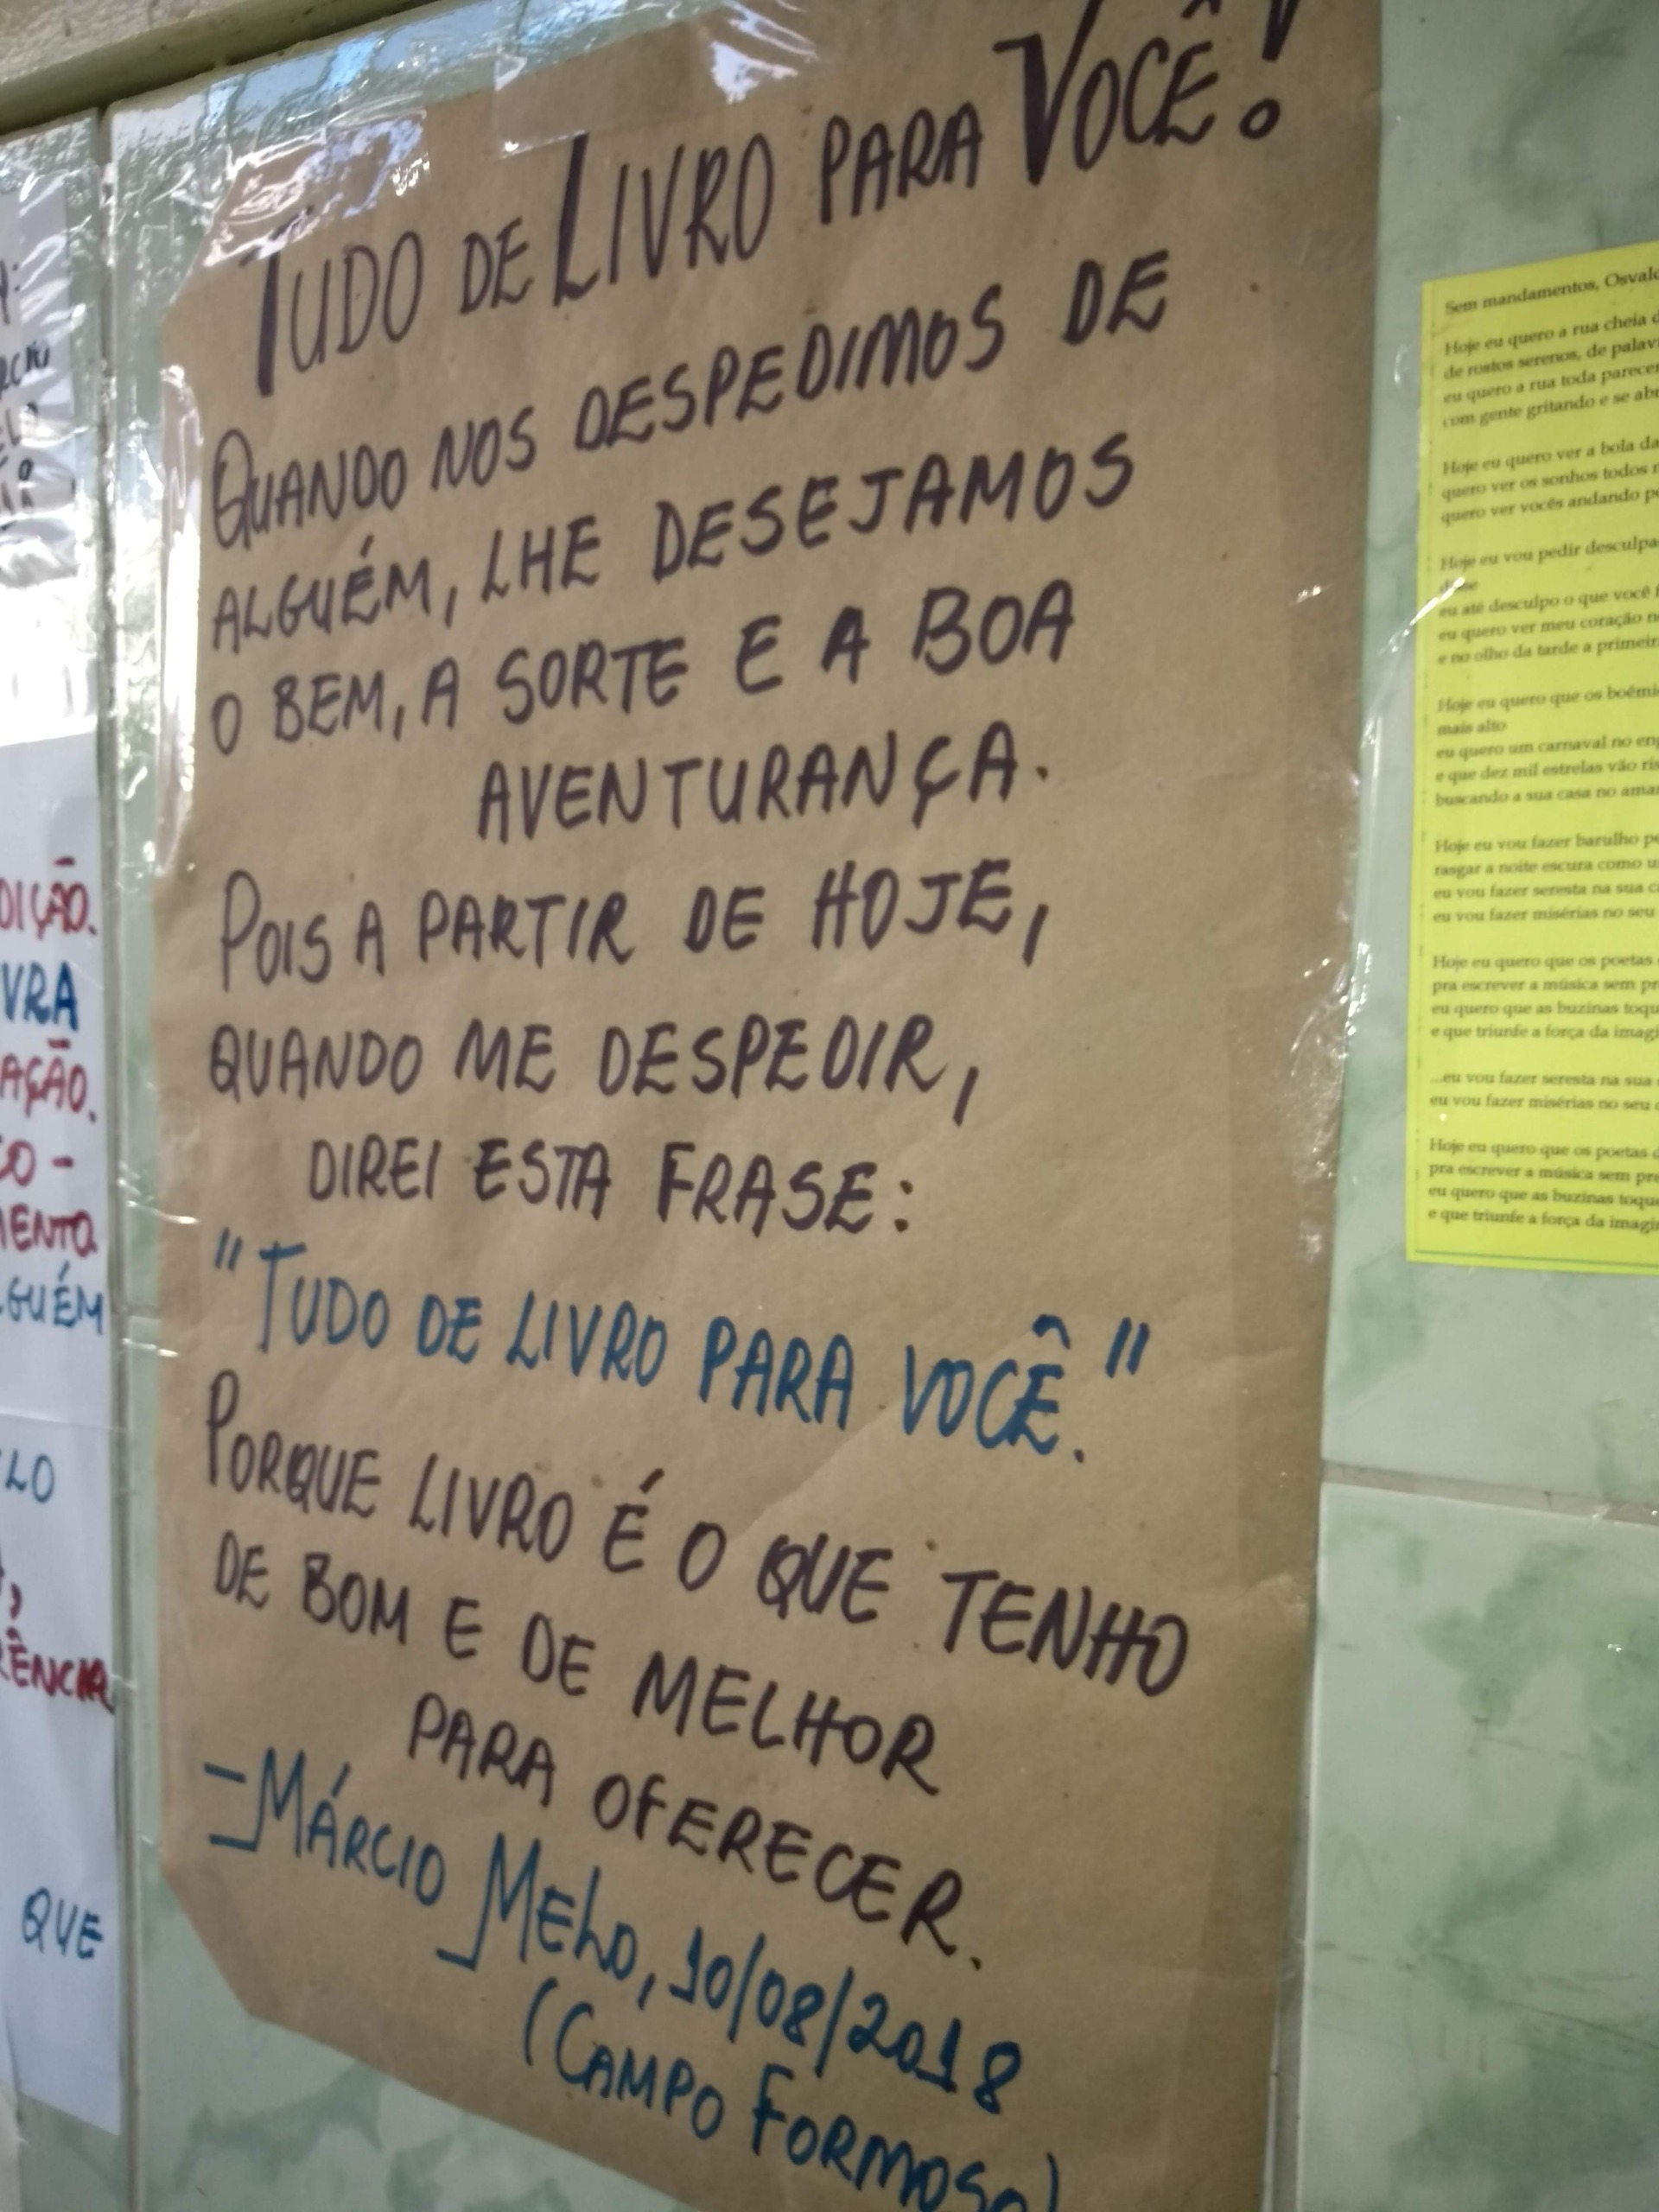 TUDO DE LIVRO PARA VOCÊ!
QUANDO NOS DESPEDIMOS DE
ALGUÉM, LHE DESEJAMOS
O BEM, A SORTE E A BOA
AVENTURANÇA.
POIS A PARTIR DE HOJE,
QUANDO ME DESPEDIR,
DIREI ESTA FRASE:
"TUDO DE LIVRO PARA VOCÊ."
PORQUE LIVRO É O QUE TENHO
DE BOM E DE MELHOR
PARA OFERECER.
-MÁRCIO MELO, 10/08/2018
(CAMPO FORMOSO)
Sem mandamentos,
Hoje eu quero a rua cheia
de rostos serenos, de
eu quero a rua toda
com gente gritando e se
Hoje eu quero ver a bola da
quero ver os sonhos todos
quero ver vocês andando
Hoje eu vou pedir
eu até desculpo o que você
eu quero ver meu coração
e no olho da tarde a
Hoje eu quero que os
mais alto
eu quero um carnaval no
e que dez mil estrelas vão
buscando a sua casa no
Hoje eu vou fazer barulho
rasgar a noite escura como
eu vou fazer seresta na sua
eu vou fazer misérias no seu
Hoje eu quero que os poetas
pra escrever a música sem
eu quero que as buzinas
e que triunfe a força da
...eu vou fazer seresta na sua
eu vou fazer misérias no seu
Hoje eu quero que os poetas
pra escrever a música sem
eu quero que as buzinas
e que triunfe a força da
QUE